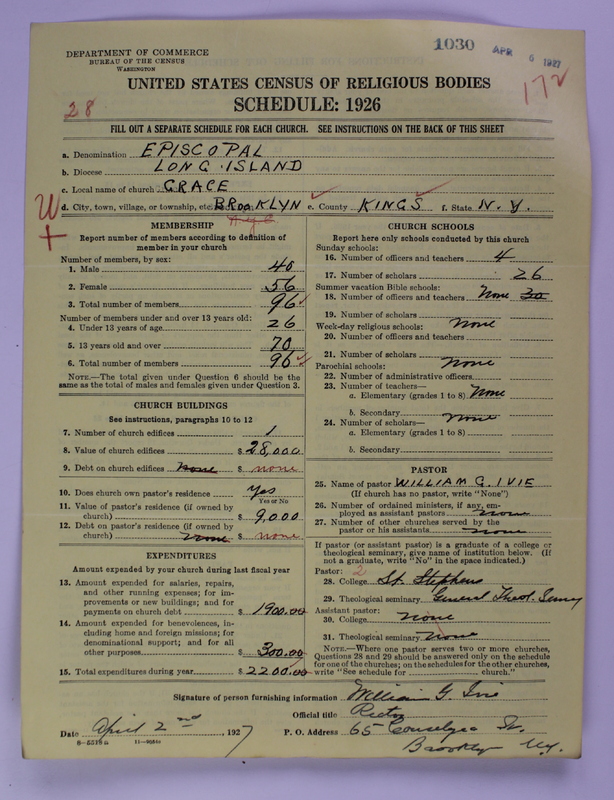 1030 APR 6 1927
DEPARTMENT OF COMMERCE
BUREAU OF THE CENSUS
WASHINGTON
172
UNITED STATES CENSUS OF RELIGIOUS BODIES
28
SCHEDULE: 1926
FILL OUT A SEPARATE SCHEDULE FOR EACH CHURCH. SEE INSTRUCTIONS ON THE BACK OF THIS SHEET
a. Denomination EPISCOPAL
b. Diocese LONG ISLAND
c. Local name of church GRACE
d. City, town, village, or township, etc. BROOKLYN e. County KINGS f. State N.Y.
N.Y.C.
W
+
MEMBERSHIP
Report number of members according to definition of
member in your church
Number of members, by sex:
1. Male 40
2. Female 56
3. Total number of members 96
Number of members under and over 13 years old:
4. Under 13 years of age 26
5. 13 years old and over 70
6. Total number of members 96
NOTE.—The total given under Question 6 should be the
same as the total of males and females given under Question 3.
CHURCH BUILDINGS
See instructions, paragraphs 10 to 12
7. Number of church edifices 1
8. Value of church edifices $ 28,000
9. Debt on church edifices None $ none
10. Does church own pastor's residence Yes
Yes or No
11. Value of pastor's residence (if owned by
church) $ 9,000
12. Debt on pastor's residence (if owned by
church) None $ none
EXPENDITURES
Amount expended by your church during last fiscal year
13. Amount expended for salaries, repairs,
and other running expenses; for im-
provements or new buildings; and for
payments on church debt $ 1900.00
14. Amount expended for benevolences, in-
cluding home and foreign missions; for
denominational support; and for all
other purposes $ 300.00
15. Total expenditures during year $ 2200.00
CHURCH SCHOOLS
Report here only schools conducted by this church
Sunday schools:
16. Number of officers and teachers 4
17. Number of scholars 26
Summer vacation Bible schools:
18. Number of officers and teachers None 30
19. Number of scholars None
Week-day religious schools:
20. Number of officers and teachers
21. Number of scholars None
Parochial schools:
22. Number of administrative officers
23. Number of teachers—
a. Elementary (grades 1 to 8) None
b. Secondary None
24. Number of scholars—
a. Elementary (grades 1 to 8)
b. Secondary
PASTOR
25. Name of pastor WILLIAM G. IVIE
(If church has no pastor, write "None")
26. Number of ordained ministers, if any, em-
ployed as assistant pastors none
27. Number of other churches served by the
pastor or his assistants none
If pastor (or assistant pastor) is a graduate of a college or
theological seminary, give name of institution below. (If
not a graduate, write "No" in the space indicated.)
Pastor: 2
28. College St. Stephens
29. Theological seminary General Theol. Semry
Assistant pastor:
30. College none
31. Theological seminary none
NOTE.—Where one pastor serves two or more churches,
Questions 28 and 29 should be answered only on the schedule
for one of the churches; on the schedules for the other churches,
write "See schedule for church."
Signature of person furnishing information William G. Ivie
Official title Rector
Date April 2nd, 1927 P. O. Address 65 St.
Brooklyn N.Y.